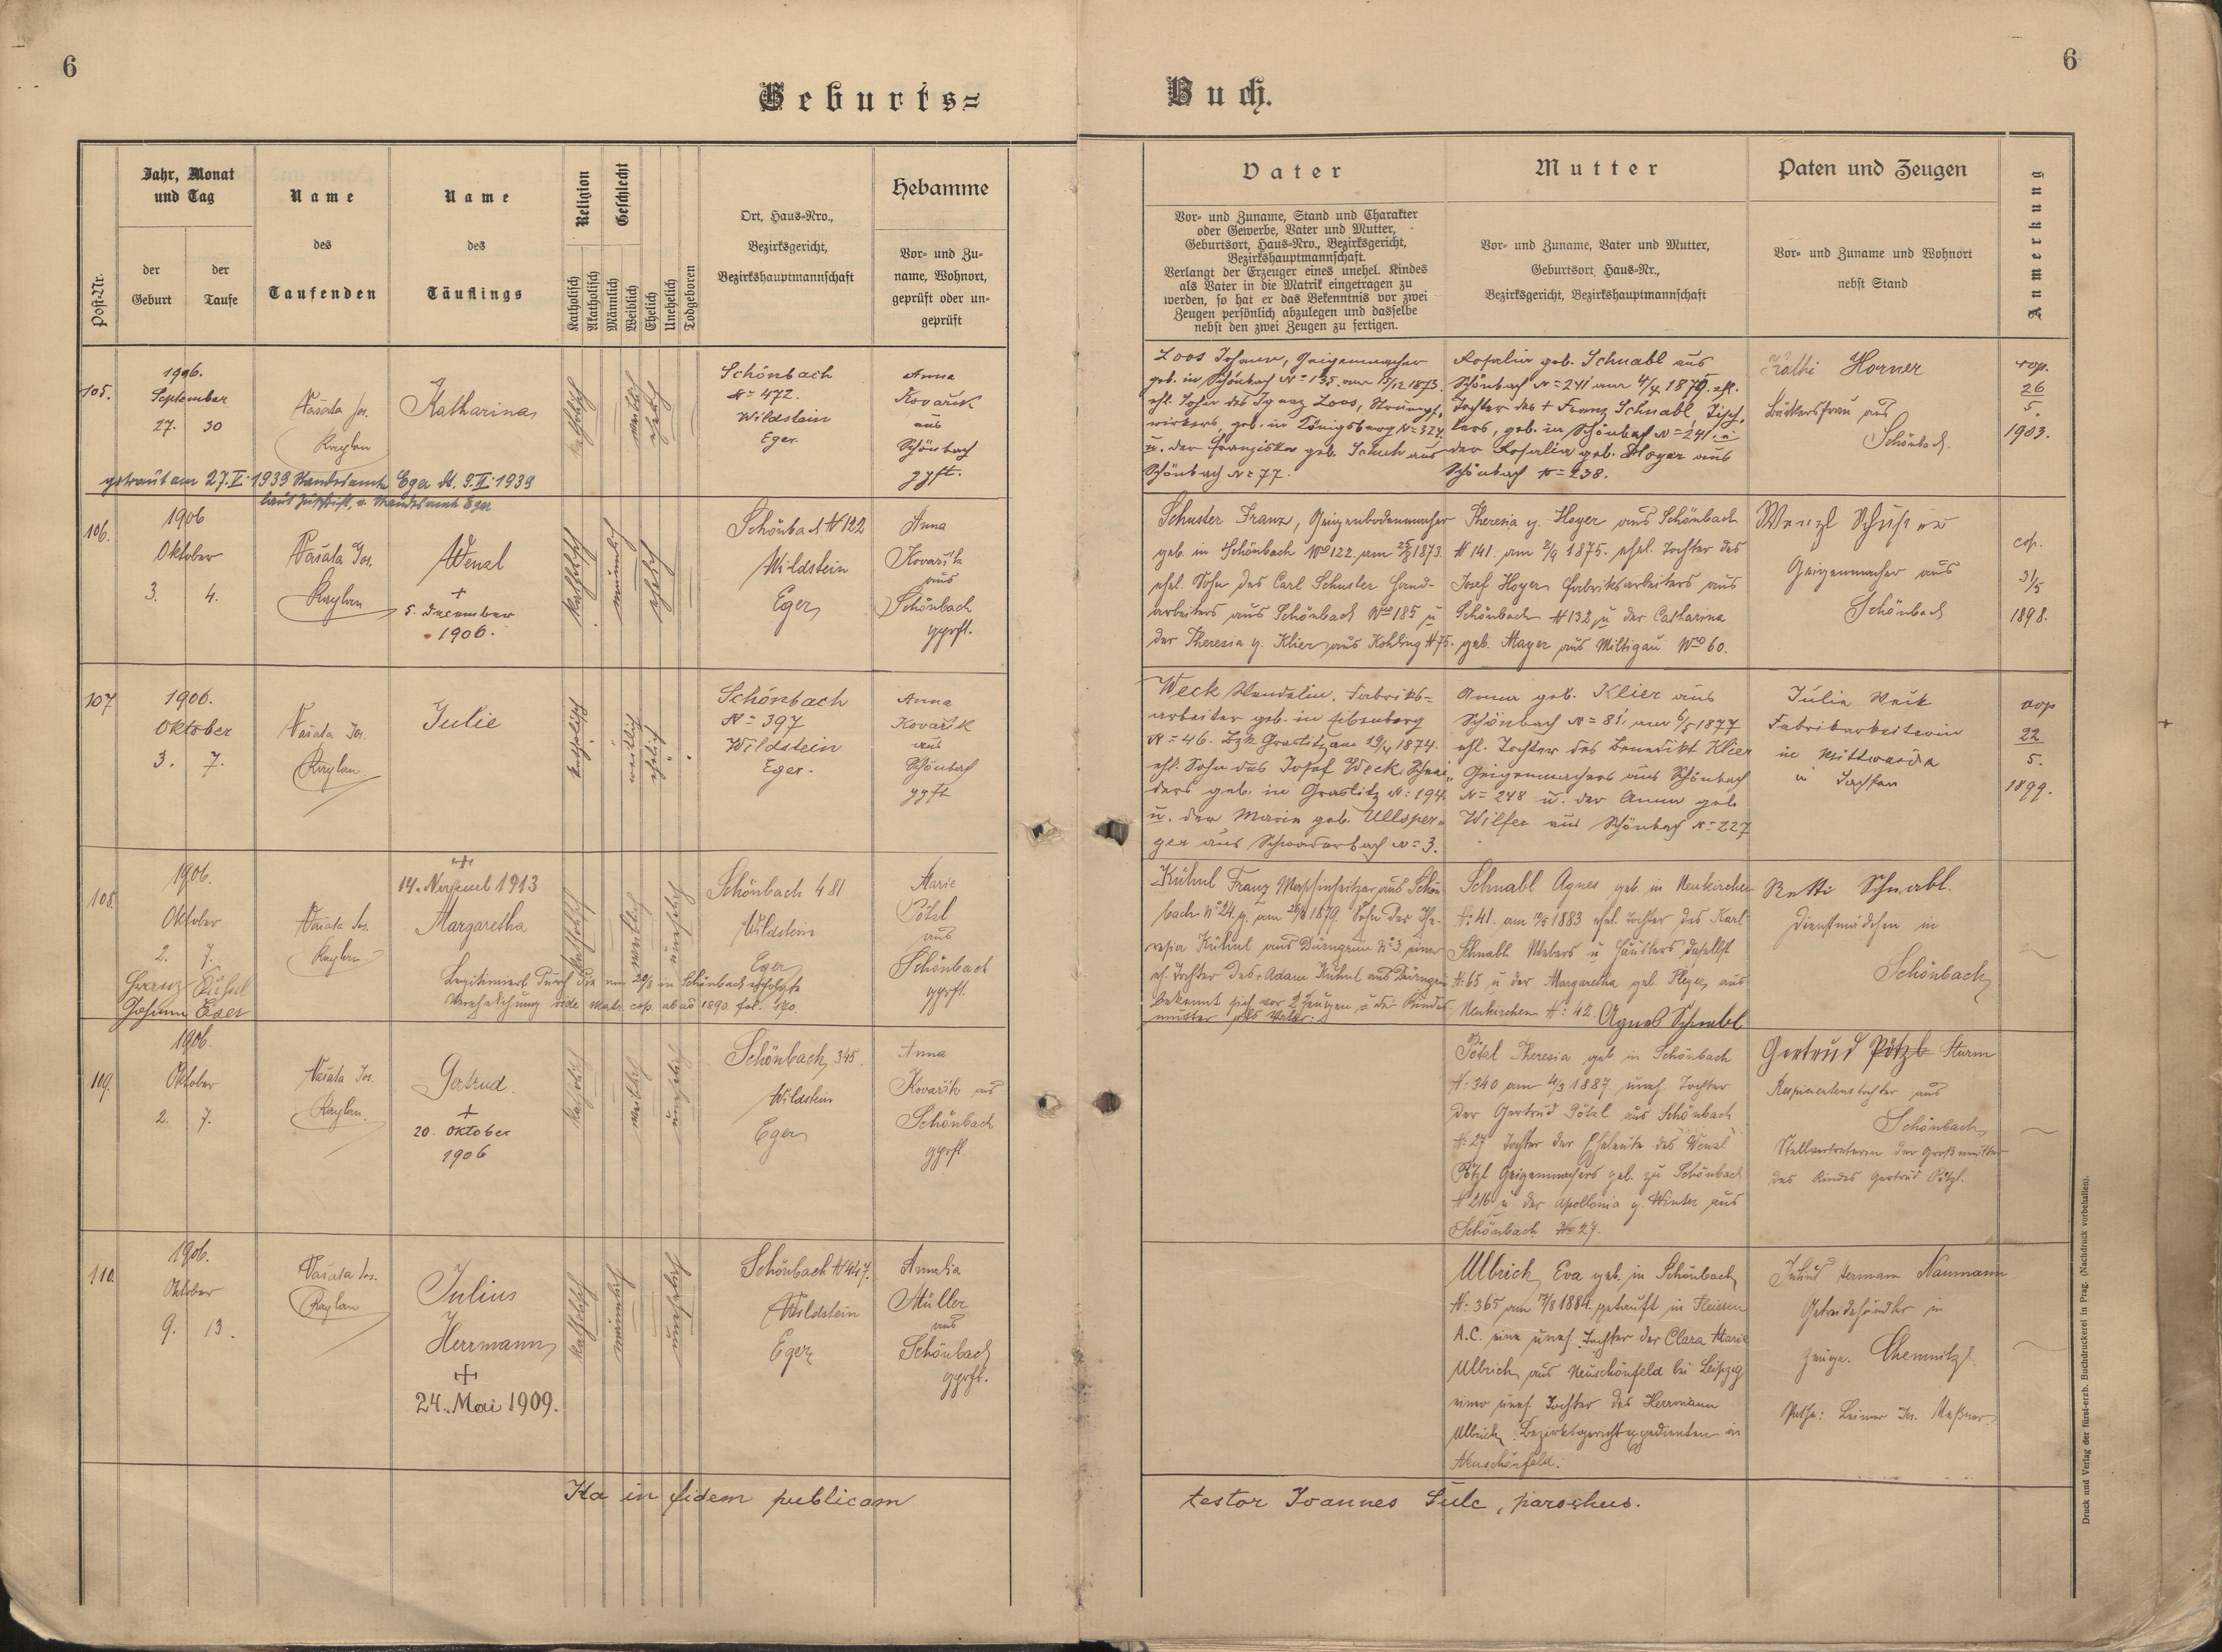 6
6
Geburts=
Buch.
Post-Nr.
Jahr, Monat
und Tag
der
Geburt
der
Taufe
Name
des
Taufenden
Name
des
Täuflings
Religion
Katholisch
Akatholisch
Geschlecht
Männlich
Weiblich
Ehelich
Unehelich
Todgeboren
Ort, Haus=Nro.,
Bezirksgericht,
Bezirkshauptmannschaft
Hebamme
Vor= und Zu=
name, Wohnort,
geprüft oder un=
geprüft
Vater
Vor= und Zuname, Stand und Charakter
oder Gewerbe, Vater und Mutter,
Geburtsort, Haus=Nro., Bezirksgericht,
Bezirkshauptmannschaft.
Verlangt der Erzeuger eines unehel. Kindes
als Vater in die Matrik eingetragen zu
werden, so hat er das Bekenntnis vor zwei
Zeugen persönlich abzulegen und dasselbe
nebst den zwei Zeugen zu fertigen.
Mutter
Vor= und Zuname, Vater und Mutter,
Geburtsort, Haus=Nr.,
Bezirksgericht, Bezirkshauptmannschaft
Paten und Zeugen
Vor= und Zuname und Wohnort
nebst Stand
Anmerkung
105.
1906.
September
27. 30
Vašata Jos.
Kaplan
Katharina
katholisch
weiblich
ehelich
Schönbach
N= 472.
Wildstein
Eger.
Anna
Kovařik
aus
Schönbach
gpft.
getraut am 27.V.1939 Standesamt Eger
laut Zuschrift, v. Standesamt Eger
Loos Johann, Geigenmacher
geb. in Schönbach N= 135. am 13/12 1873.
ehl. Sohn des Ignaz Loos, Strumpf=
wirkers, geb. in Königsberg N= 324.
u. der Franziska geb. Schuh aus
Schönbach N= 77.
Rosalia geb. Schnabl aus
Schönbach N= 241 am 4/4 1879. ehl.
Tochter des + Franz Schnabl, Tisch=
lers, geb. in Schönbach N= 241. u.
der Rosalia geb. Hoyer aus
Schönbach N= 238.
Kathi Horner
Bäckersfrau aus
Schönbach.
cop.
26
5.
1903.
106.
1906
Oktober
3. 4.
Vašata Jos.
Kaplan
Wenzl
+
5. December
1906.
katholisch
männlich
ehelich
Schönbach N 122
Wildstein
Eger
Anna
Kovařik
aus
Schönbach
gprft.
Schuster Franz, Geigenbodenmacher
geb. in Schönbach No 122. am 25/8 1873.
ehel. Sohn des Carl Schuster Hand=
arbeiters aus Schönbach No 185 u
der Theresia g. Klier aus Kohling N 75.
Theresia g. Hoyer aus Schönbach
N 141. am 2/9 1875. ehel. Tochter des
Josef Hoyer Fabriksarbeiters aus
Schönbach N 132 u der Catharina
geb. Mayer aus Miltigau No 60.
Wenzl Schuster
Geigenmacher aus
Schönbach
cop.
31/5
1898.
107
1906.
Oktober
3. 7.
Vašata Jos.
Kaplan
Julie
katholisch
weiblich
ehelich
Schönbach
N= 397
Wildstein
Eger.
Anna
Kovařik
aus
Schönbach
gpft
Weck Wendelin. Fabriks=
arbeiter geb. in Eibenberg
N= 46. Bzk Graslitz am 19/4 1874.
ehl. Sohn des Josef Weck, Schnei=
ders geb. in Graslitz N= 194.
u. der Marie geb. Ullsper=
ger aus Schwaderbach N= 3.
Anna geb. Klier aus
Schönbach N= 81. am 6/5 1877
ehl. Tochter des Benedikt Klier
Geigenmachers aus Schönbach
N= 248 u. der Anna geb.
Wilfer aus Schönbach N= 227
Julia Weik
Fabrikarbeiterin
in Mittwaida
in Sachsen
cop
22
5.
1899.
108.
1906.
Oktober
2. 7.
Vašata Jos.
Kaplan
+
14. November 1913
Margaretha
katholisch
weiblich
unehelich
Schönbach 481
Wildstein
Eger
Marie
Pötzl
aus
Schönbach
gprft.
Legitimiert durch die am 20/8 in Schönbach erfolgte
Verehelichung vide Matr. cop. ab ao 1890. fol. 170.
Kühnl Franz Maschinheitzer aus Schön=
bach N 24. g. am 1879. Sohn der The=
resia Kühnl aus Dürngrün N 3 einer
eh. Tochter des + Adam Kühnl aus Dürngrün
bekennt sich vor 2 Zeugen u der Kindes
mutter als Vater:
Schnabl Agnes geb. in Neukirchen
N: 41. am 1883 ehel. Tochter des Karl
Schnabl Webers u Häuslers daselbst
N: 65 u der Margaretha geb. Pleyer aus
Neukirchen N: 42. Agnes Schnabl
Betti Schnabl.
Dienstmädchen in
Schönbach
109.
1906.
Oktober
2. 7.
Vašata Jos.
Kaplan.
Gertrud.
+
20. Oktober
1906
katholisch
weiblich
unehelich
Schönbach 345.
Wildstein
Eger
Anna
Kovařik aus
Schönbach
gprft.
Pötzl Theresia geb. in Schönbach
N: 340 am 4/3 1887. uneh. Tochter
der Gertrud Pötzl aus Schönbach
N: 27 Tochter der Eheleute des Wenzl
Pötzl Geigenmachers geb. zu Schönbach
N 216 u der Apollonia g. Winter aus
Schönbach N: 27.
Gertrud Pötzl Sturm
Respicientenstochter aus
Schönbach
Stellvertreterin der Großmutter
des Kindes Gertrud Pötzl.
110.
1906.
Oktober
9. 13.
Vašata Jos.
Kaplan
Julius
Herrmann
+
24. Mai 1909.
katholisch
männlich
unehelich
Schönbach N 447.
Wildstein
Eger
Amalia
Müller
aus
Schönbach
gprft.
Ulbrich Eva geb. in Schönbach
N: 365 am 17/8 1884. getauft in Fleissen
A.C. eine uneh. Tochter der Clara Marie
Ulbrich aus Neuschönfeld bei Leipzig
einer uneh. Tochter des Herrmann
Ulbrich Bezirksgerichtsexpedienten in
Neuschönfeld.
Julius Hermann Naumann
Getreidehändler in
Zeuge. Chemnitz.
Pathe: Leimer Jos. Meßner
Ita in fidem publicam
testor Joannes Šulc, parochus.
Druck und Verlag der fürst-erzb. Buchdruckerei in Prag. (Nachdruck vorbehalten).